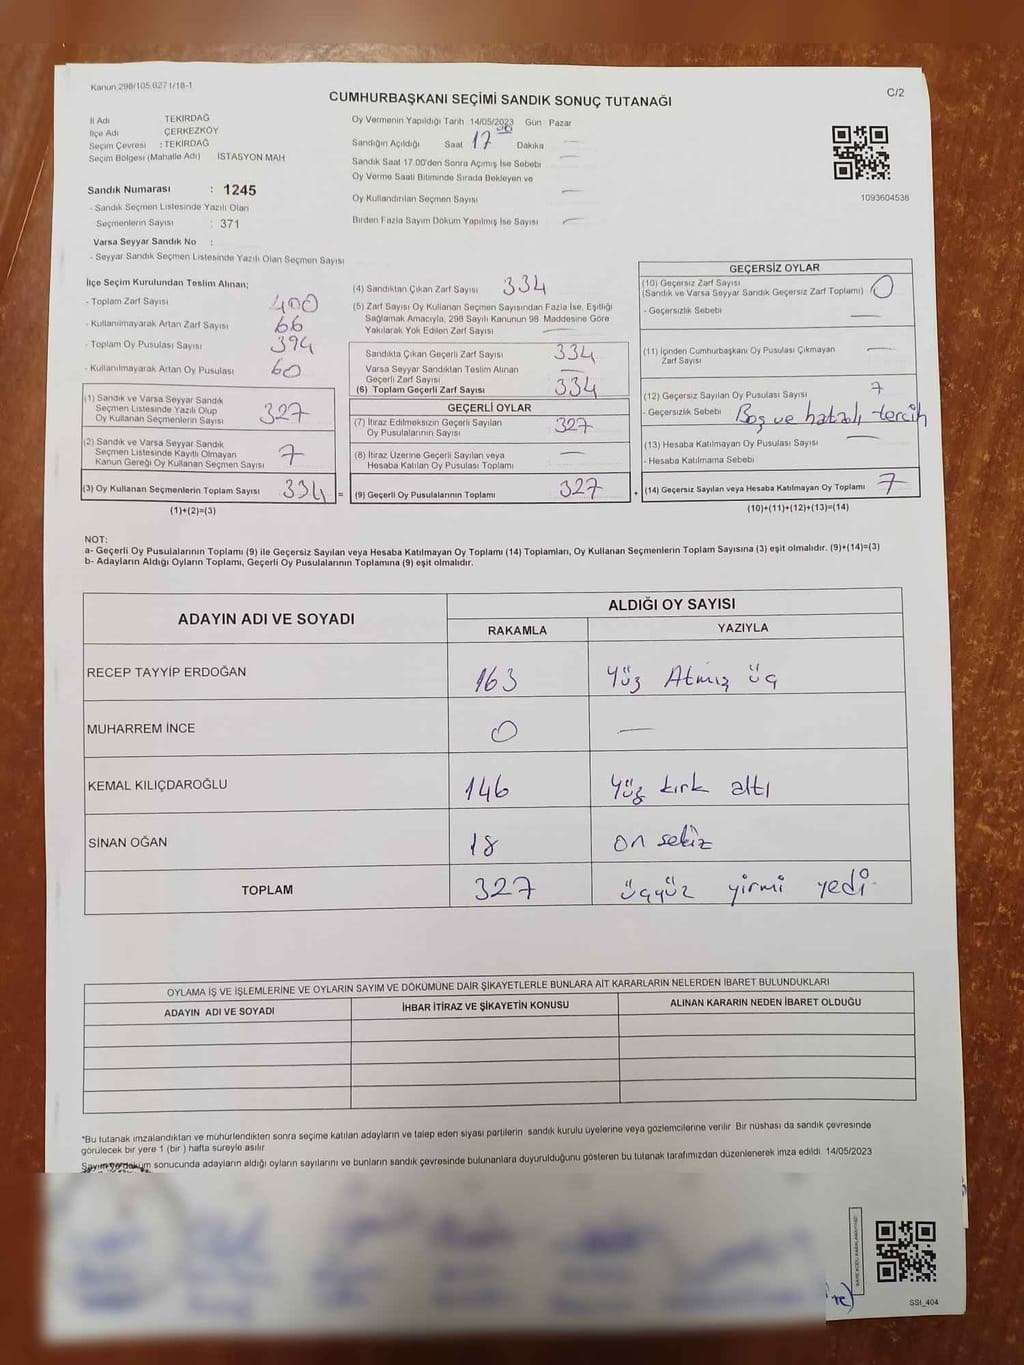 Kanun 298/105.6271/18-1
C/2
CUMHURBAŞKANI SEÇİMİ SANDIK SONUÇ TUTANAĞI
İl Adı TEKİRDAĞ
İlçe Adı ÇERKEZKÖY
Seçim Çevresi : TEKİRDAĞ
Seçim Bölgesi (Mahalle Adı) İSTASYON MAH
Sandık Numarası : 1245
- Sandık Seçmen Listesinde Yazılı Olan
Seçmenlerin Sayısı : 371
Varsa Seyyar Sandık No :
- Seyyar Sandık Seçmen Listesinde Yazılı Olan Seçmen Sayısı
Oy Vermenin Yapıldığı Tarih 14/05/2023 Gün Pazar
Sandığın Açıldığı Saat 17 00 Dakika —
Sandık Saat 17.00'den Sonra Açımış İse Sebebi —
Oy Verme Saati Bitiminde Sırada Bekleyen ve
Oy Kullandırılan Seçmen Sayısı —
Birden Fazla Sayım Döküm Yapılmış İse Sayısı —
1093604538
İlçe Seçim Kurulundan Teslim Alınan;
- Toplam Zarf Sayısı 400
- Kullanılmayarak Artan Zarf Sayısı 66
- Toplam Oy Pusulası Sayısı 394
- Kullanılmayarak Artan Oy Pusulası 60
(1) Sandık ve Varsa Seyyar Sandık
Seçmen Listesinde Yazılı Olup
Oy Kullanan Seçmenlerin Sayısı 327
(2) Sandık ve Varsa Seyyar Sandık
Seçmen Listesinde Kayıtlı Olmayan
Kanun Gereği Oy Kullanan Seçmen Sayısı 7
(3) Oy Kullanan Seçmenlerin Toplam Sayısı 334 =
(1)+(2)=(3)
(4) Sandıktan Çıkan Zarf Sayısı 334
(5) Zarf Sayısı Oy Kullanan Seçmen Sayısından Fazla İse, Eşitliği
Sağlamak Amacıyla, 298 Sayılı Kanunun 98. Maddesine Göre
Yakılarak Yok Edilen Zarf Sayısı —
Sandıkta Çıkan Geçerli Zarf Sayısı 334
Varsa Seyyar Sandıktan Teslim Alınan
Geçerli Zarf Sayısı —
(6) Toplam Geçerli Zarf Sayısı 334
GEÇERLİ OYLAR
(7) İtiraz Edilmeksizin Geçerli Sayılan
Oy Pusulalarının Sayısı 327
(8) İtiraz Üzerine Geçerli Sayılan veya
Hesaba Katılan Oy Pusulası Toplamı —
(9) Geçerli Oy Pusulalarının Toplamı 327 +
GEÇERSİZ OYLAR
(10) Geçersiz Zarf Sayısı
(Sandık ve Varsa Seyyar Sandık Geçersiz Zarf Toplamı) 0
- Geçersizlik Sebebi —
(11) İçinden Cumhurbaşkanı Oy Pusulası Çıkmayan
Zarf Sayısı —
(12) Geçersiz Sayılan Oy Pusulası Sayısı 7
- Geçersizlik Sebebi Boş ve hatalı tercih
(13) Hesaba Katılmayan Oy Pusulası Sayısı —
- Hesaba Katılmama Sebebi
(14) Geçersiz Sayılan veya Hesaba Katılmayan Oy Toplamı 7
(10)+(11)+(12)+(13)=(14)
NOT:
a- Geçerli Oy Pusulalarının Toplamı (9) ile Geçersiz Sayılan veya Hesaba Katılmayan Oy Toplamı (14) Toplamları, Oy Kullanan Seçmenlerin Toplam Sayısına (3) eşit olmalıdır. (9)+(14)=(3)
b- Adayların Aldığı Oyların Toplamı, Geçerli Oy Pusulalarının Toplamına (9) eşit olmalıdır.
ADAYIN ADI VE SOYADI ALDIĞI OY SAYISI
RAKAMLA YAZIYLA
RECEP TAYYİP ERDOĞAN 163 Yüz Atmış üç
MUHARREM İNCE 0 —
KEMAL KILIÇDAROĞLU 146 Yüz kırk altı
SİNAN OĞAN 18 on sekiz
TOPLAM 327 üçyüz yirmi yedi
OYLAMA İŞ VE İŞLEMLERİNE VE OYLARIN SAYIM VE DÖKÜMÜNE DAİR ŞİKAYETLERLE BUNLARA AİT KARARLARIN NELERDEN İBARET BULUNDUKLARI
ADAYIN ADI VE SOYADI İHBAR İTİRAZ VE ŞİKAYETİN KONUSU ALINAN KARARIN NEDEN İBARET OLDUĞU
*Bu tutanak imzalandıktan ve mühürlendikten sonra seçime katılan adayların ve talep eden siyasi partilerin sandık kurulu üyelerine veya gözlemcilerine verilir Bir nüshası da sandık çevresinde
görülecek bir yere 1 (bir ) hafta süreyle asılır
Sayım ve döküm sonucunda adayların aldığı oyların sayılarını ve bunların sandık çevresinde bulunanlara duyurulduğunu gösteren bu tutanak tarafımızdan düzenlenerek imza edildi. 14/05/2023
SSI_404